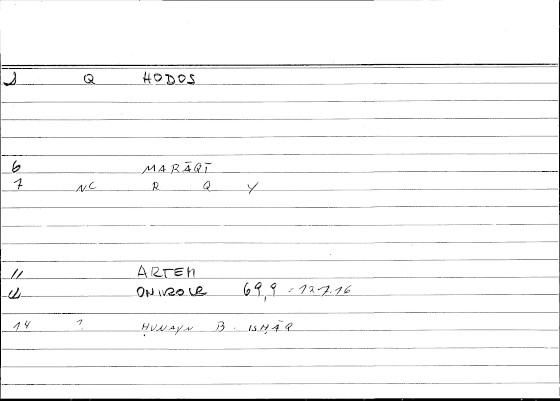 1 Q HODOS
6 MARĀQĪ
7 NC R Q Y
11 ARTEM
12 ONIROCR 69,9 = 127.16
14 ?. ḤUNAYN B. ISḤĀQ